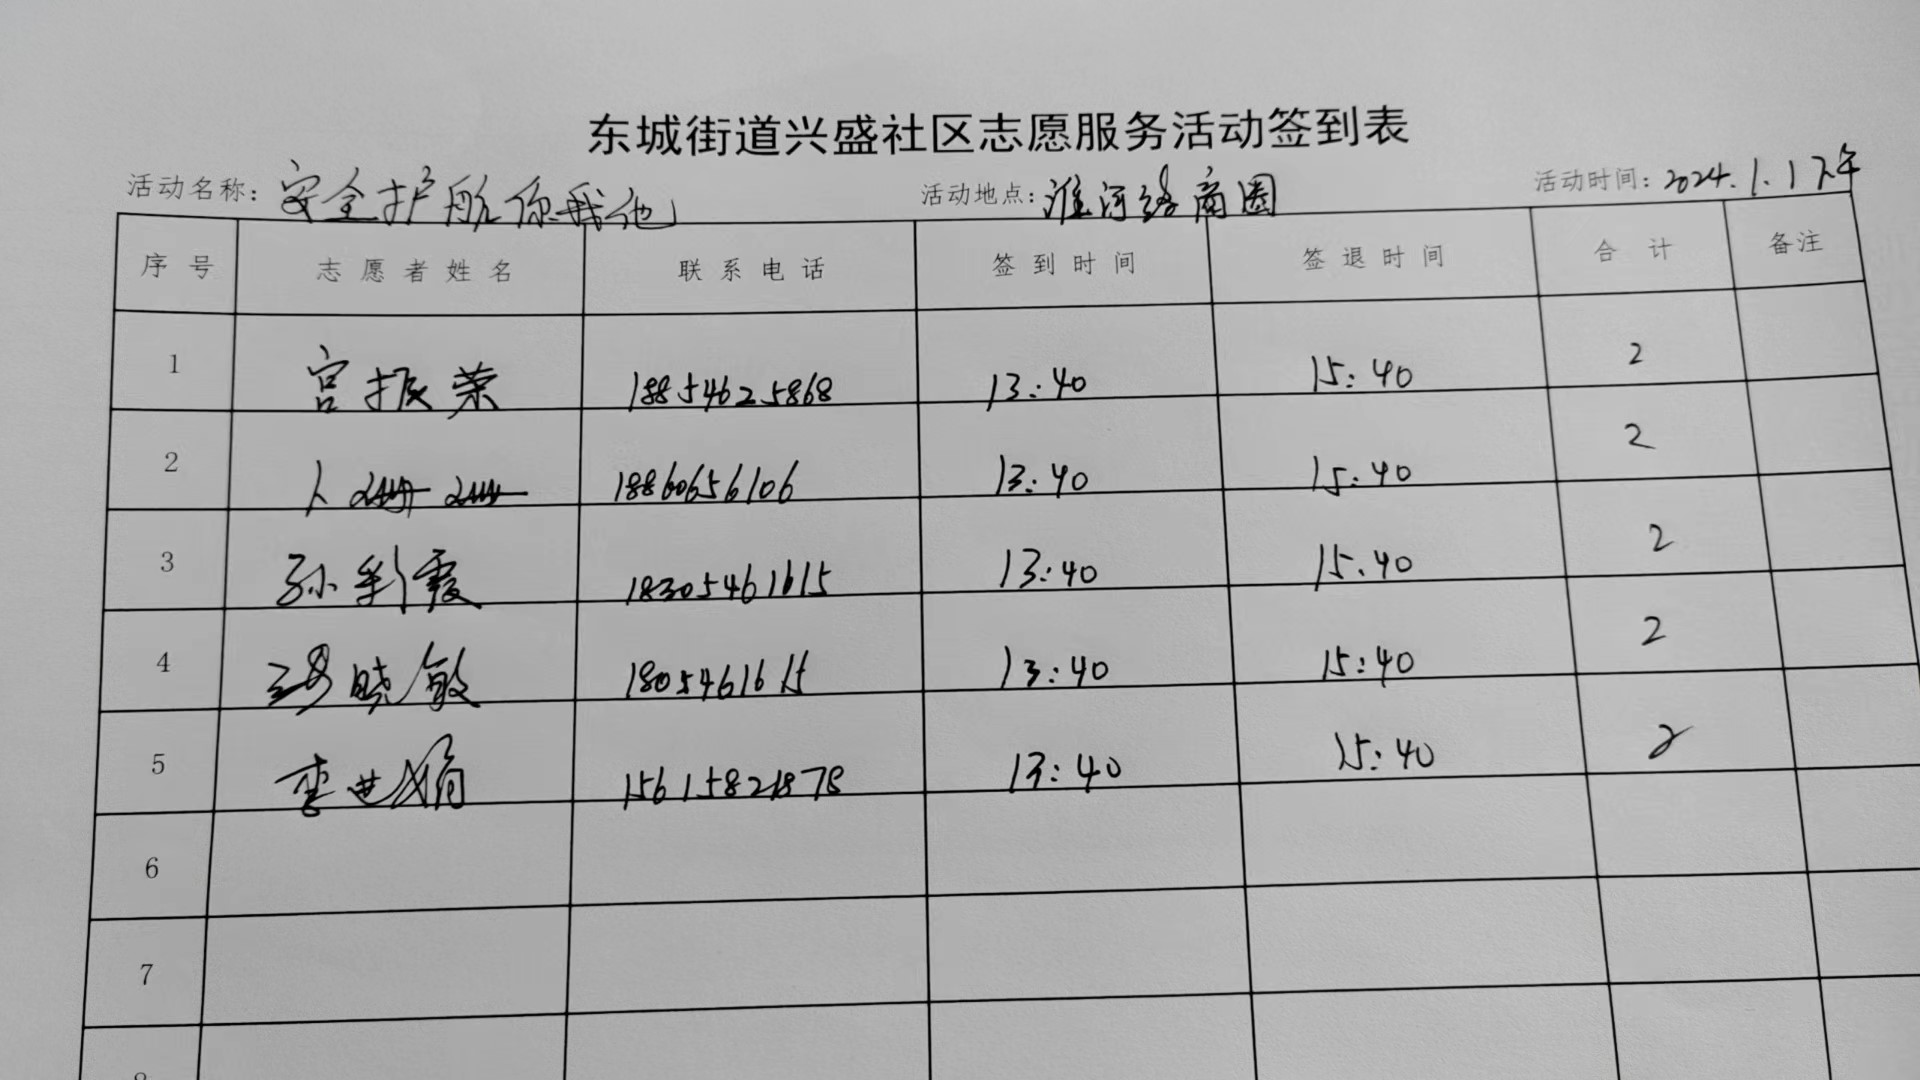 东城街道兴盛社区志愿服务活动签到表
活动名称：安全护航你我他 活动地点：淮河路商圈 活动时间：2024.1.1下午
序号 志愿者姓名 联系电话 签到时间 签退时间 合计 备注
1 宫振荣 18854625868 13:40 15:40 2
2 18860656106 13:40 15:40 2
3 孙利霞 18305461615 13:40 15.40 2
4 冯晓敏 1805461615 13:40 15:40 2
5 李世娟 15615821878 13:40 15:40 2
6
7